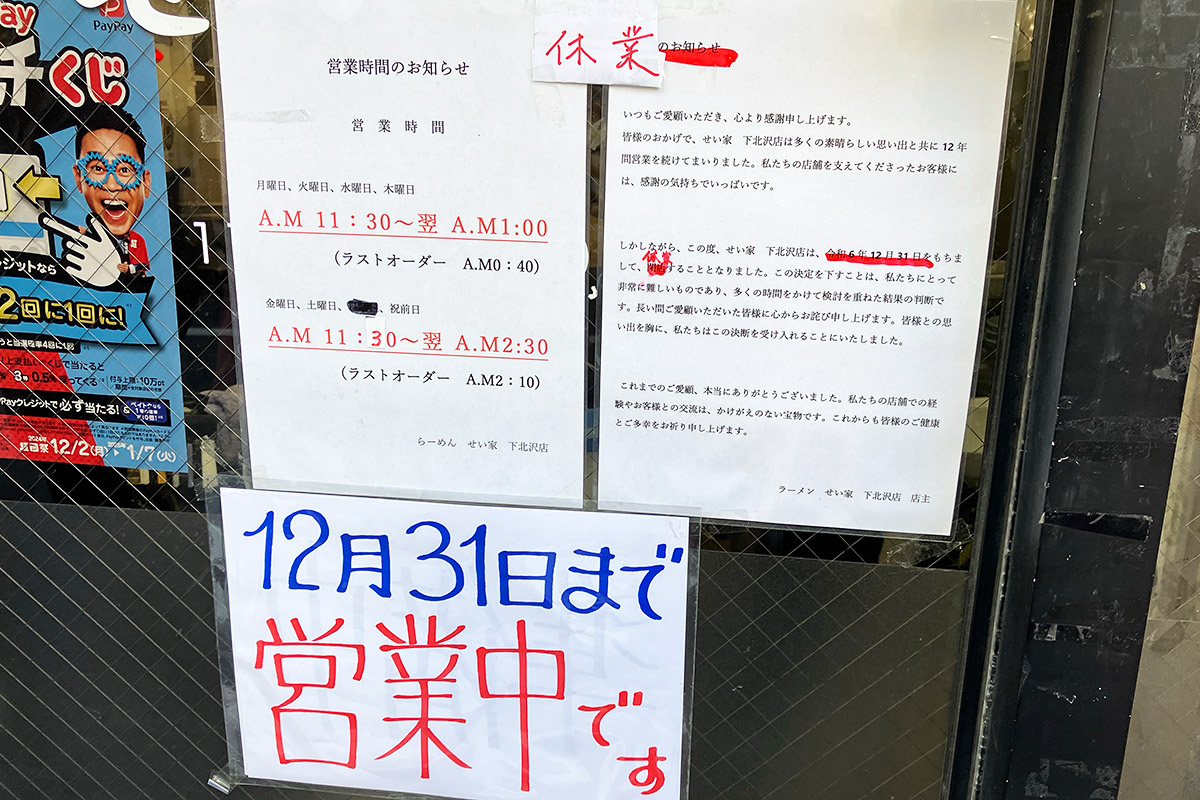 PayPay
Pay
くじ
ジットなら
2回に1回に!
うと当選確率4回に1回
3等0.5%
付与上限:10万pt
Payクレジットで必ず当たる! &
超PayPay祭 12/2(月) 1/7(火)
営業時間のお知らせ
営業時間
月曜日、火曜日、水曜日、木曜日
A.M 11:30～翌 A.M1:00
(ラストオーダー A.M0:40)
金曜日、土曜日、 祝前日
A.M 11:30～翌 A.M2:30
(ラストオーダー A.M2:10)
らーめん せい家 下北沢店
休業のお知らせ
いつもご愛顧いただき、心より感謝申し上げます。
皆様のおかげで、せい家 下北沢店は多くの素晴らしい思い出と共に 12 年
間営業を続けてまいりました。私たちの店舗を支えてくださったお客様に
は、感謝の気持ちでいっぱいです。
しかしながら、この度、せい家 下北沢店は、令和 6 年 12 月 31 日をもちま
して、休業することとなりました。この決定を下すことは、私たちにとって
非常に難しいものであり、多くの時間をかけて検討を重ねた結果の判断で
す。長い間ご愛顧いただいた皆様に心からお詫び申し上げます。皆様との思
い出を胸に、私たちはこの決断を受け入れることにいたしました。
これまでのご愛顧、本当にありがとうございました。私たちの店舗での経
験やお客様との交流は、かけがえのない宝物です。これからも皆様のご健康
とご多幸をお祈り申し上げます。
ラーメン せい家 下北沢店 店主
12月31日まで
営業中です